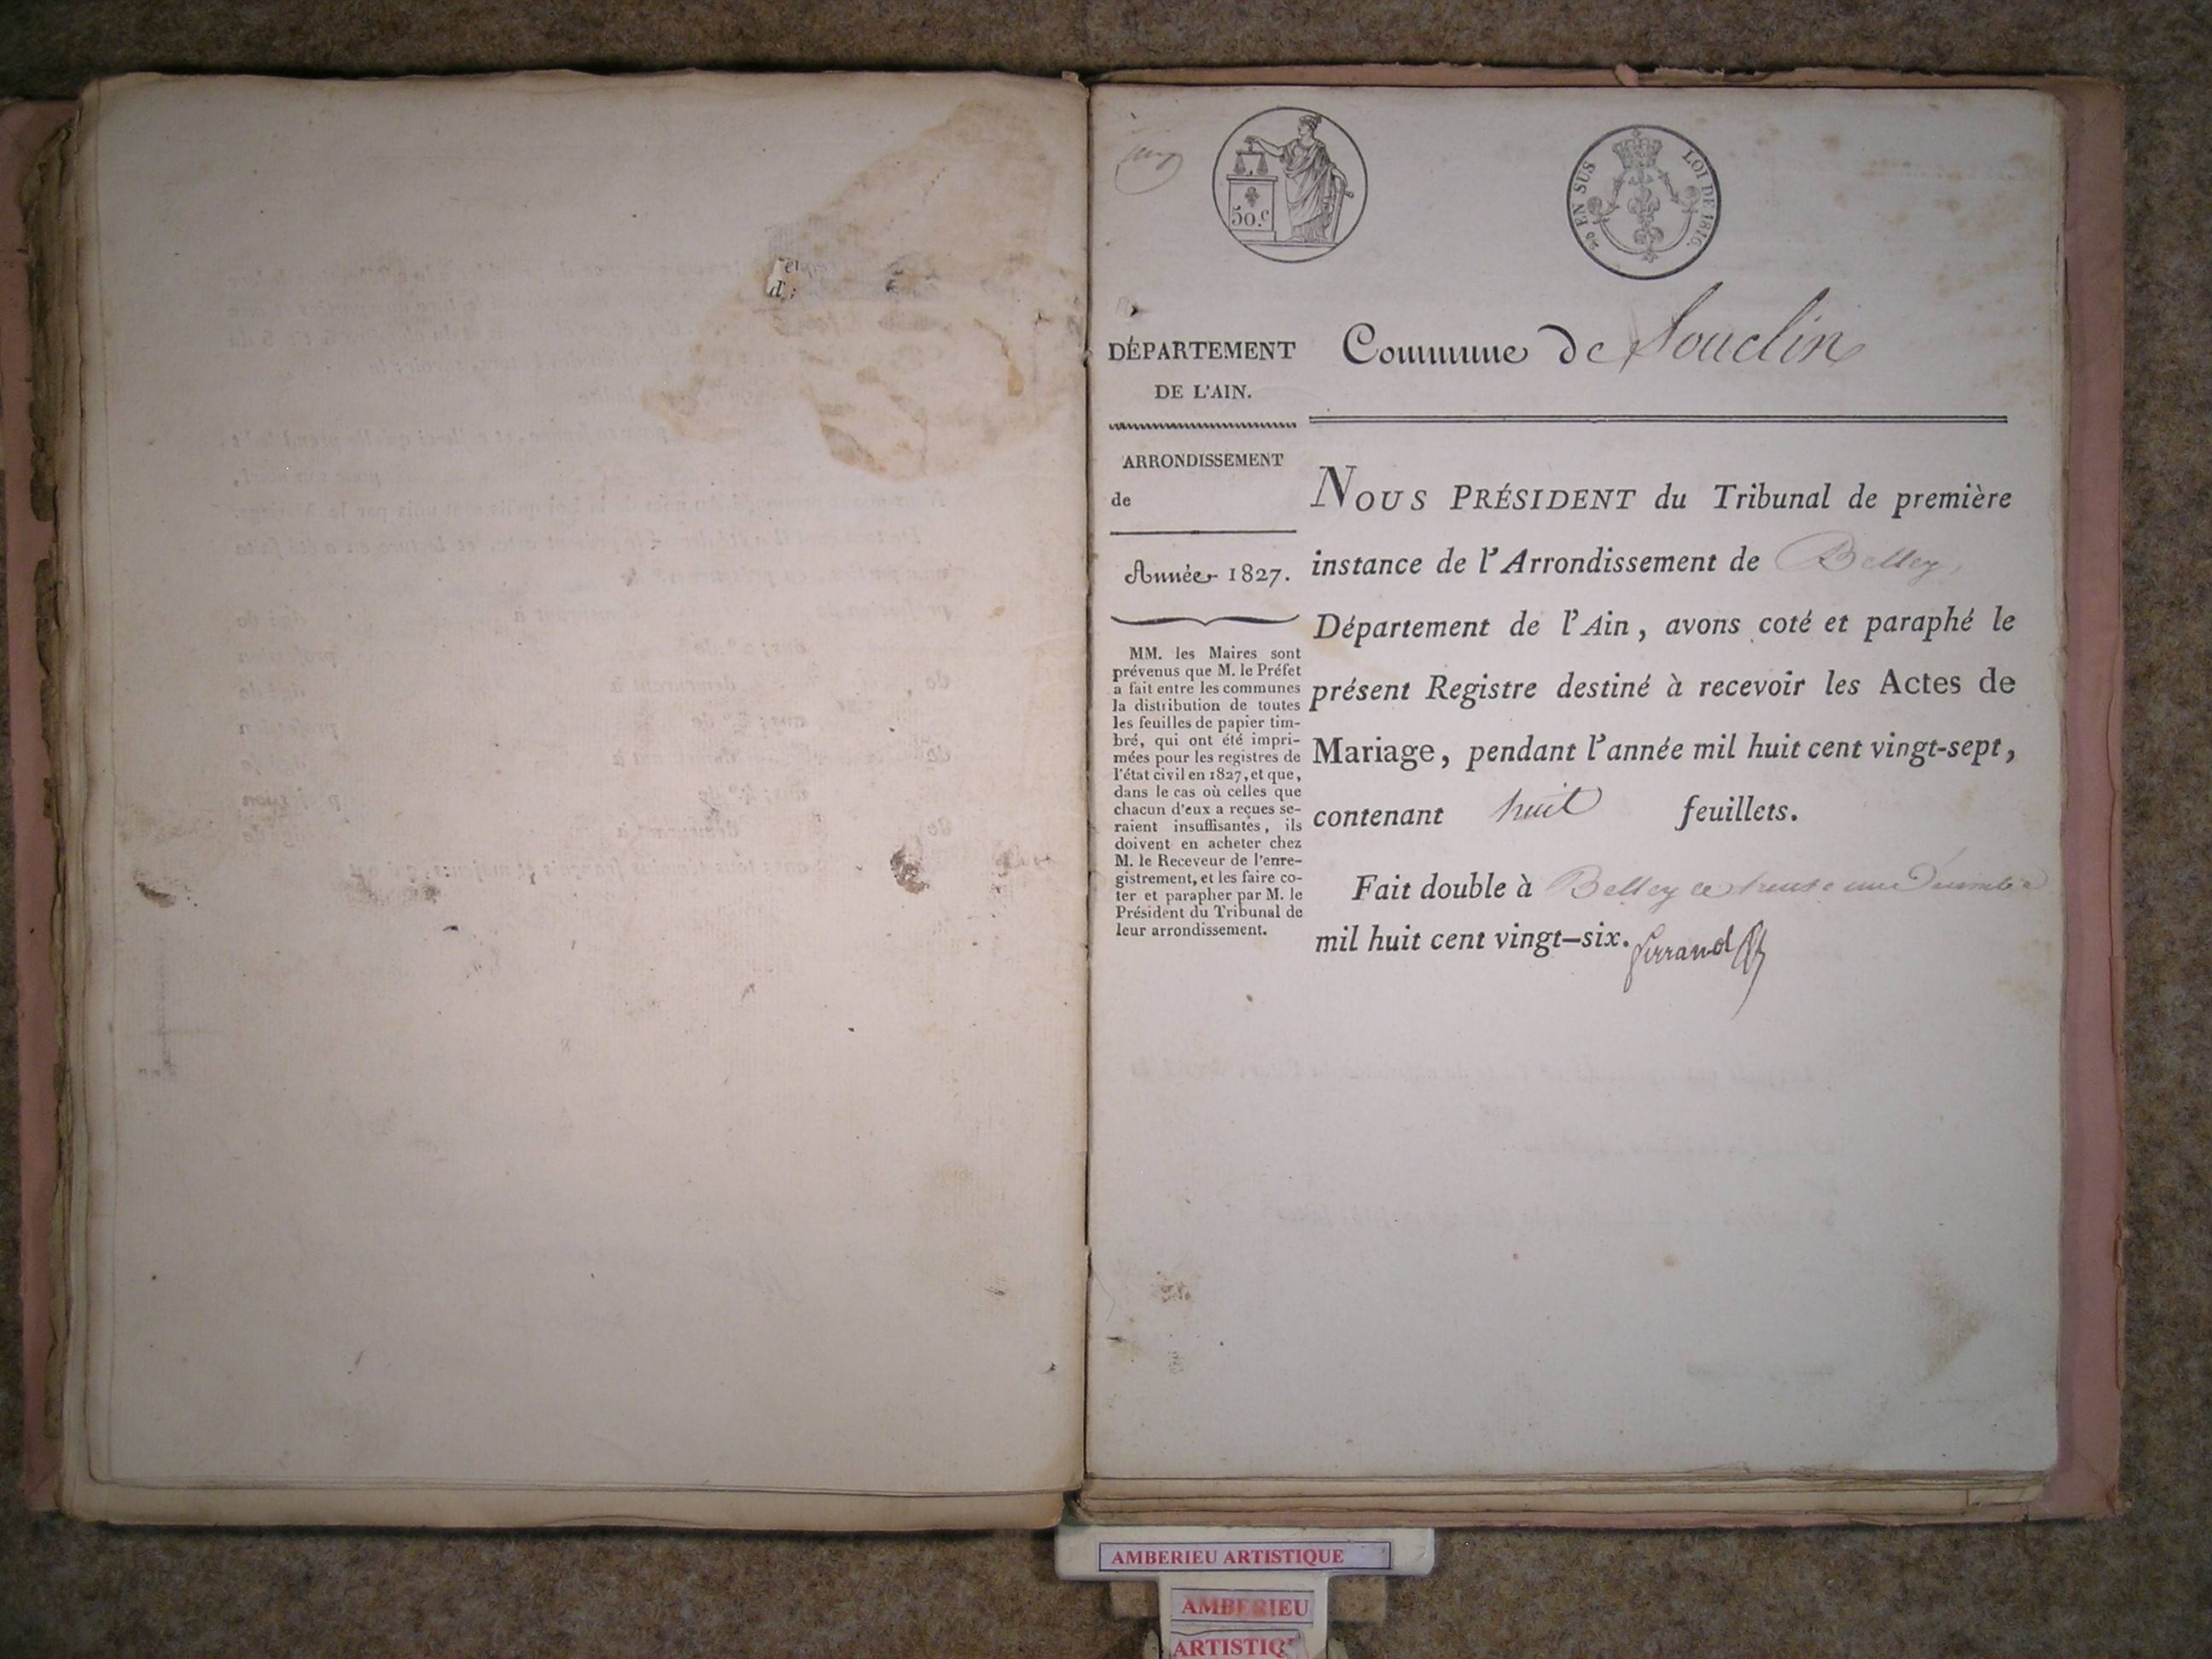 50.c
EN SUS
LOI DE 1816.
DÉPARTEMENT
DE L'AIN.
Commune de Souclin
ARRONDISSEMENT
de
Année 1827.
MM. les Maires sont
prévenus que M. le Préfet
a fait entre les communes
la distribution de toutes
les feuilles de papier tim-
bré, qui ont été impri-
mées pour les registres de
l'état civil en 1827, et que,
dans le cas où celles que
chacun d'eux a reçues se-
raient insuffisantes, ils
doivent en acheter chez
M. le Receveur de l'enre-
gistrement, et les faire co-
ter et parapher par M. le
Président du Tribunal de
leur arrondissement.
NOUS PRÉSIDENT du Tribunal de première
instance de l'Arrondissement de Belley,
Département de l'Ain, avons coté et paraphé le
présent Registre destiné à recevoir les Actes de
Mariage, pendant l'année mil huit cent vingt-sept,
contenant huit feuillets.
Fait double à Belley ce trente un Décembre
mil huit cent vingt-six.
AMBERIEU ARTISTIQUE
AMBERIEU
ARTISTIQ